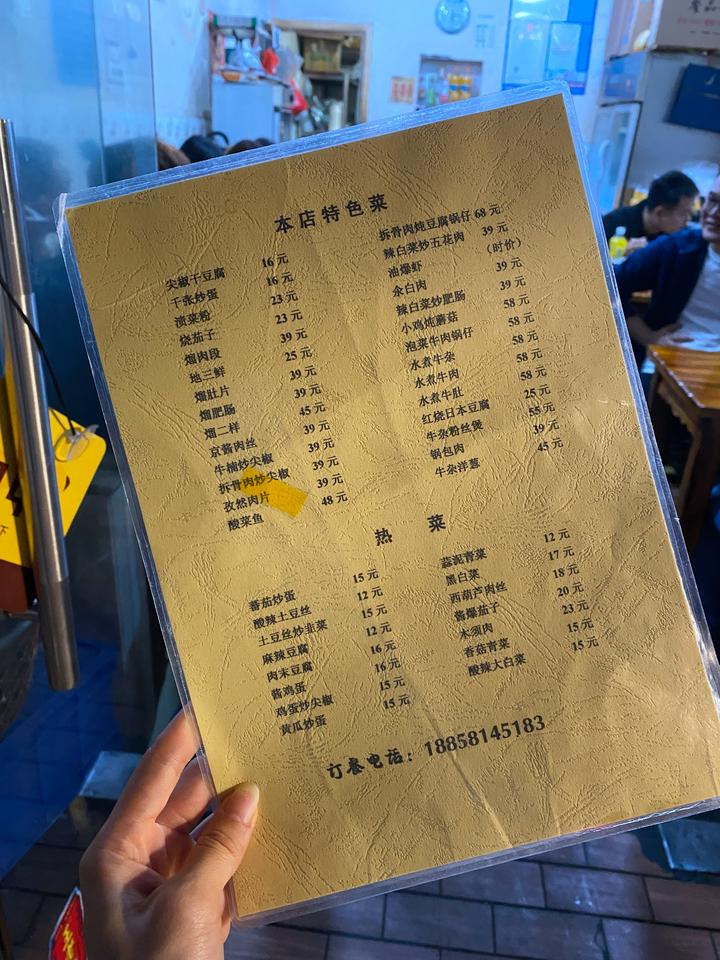 本店特色菜
尖椒干豆腐 16元
千张炒蛋 16元
渍菜粉 23元
烧茄子 23元
熘肉段 39元
地三鲜 25元
熘肚片 39元
熘肥肠 39元
熘二样 45元
京酱肉丝 39元
牛楠炒尖椒 39元
拆骨肉炒尖椒 39元
孜然肉片 39元
酸菜鱼 48元
拆骨肉炖豆腐锅仔 68元
辣白菜炒五花肉 39元
油爆虾 (时价)
汆白肉 39元
辣白菜炒肥肠 39元
小鸡炖蘑菇 58元
泡菜牛肉锅仔 58元
水煮牛杂 58元
水煮牛肉 58元
水煮牛肚 58元
红烧日本豆腐 25元
牛杂粉丝煲 55元
锅包肉 39元
牛杂洋葱 45元
热 菜
番茄炒蛋 15元
酸辣土豆丝 12元
土豆丝炒韭菜 15元
麻辣豆腐 12元
肉末豆腐 16元
酱鸡蛋 16元
鸡蛋炒尖椒 15元
黄瓜炒蛋 15元
蒜泥青菜 12元
黑白菜 17元
西葫芦肉丝 18元
酱爆茄子 20元
木须肉 23元
香菇青菜 15元
酸辣大白菜 15元
订餐电话：18858145183